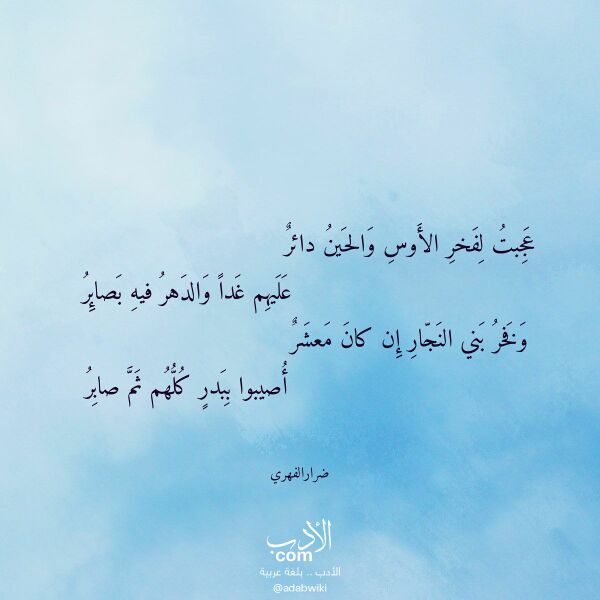 عَجِبتُ لِفَخرِ الأَوسِ وَالحَينُ دائرٌ
عَلَيهِم غَداً وَالدَهرُ فيهِ بَصائِرُ
وَفَخرُ بَني النَجّارِ إِن كانَ مَعشَرٌ
أُصيبوا بِبَدرٍ كُلُّهُم ثَمَّ صابِرُ
ضرارالفهري
الأدب
com
الأدب .. بلغة عربية
@adabwiki